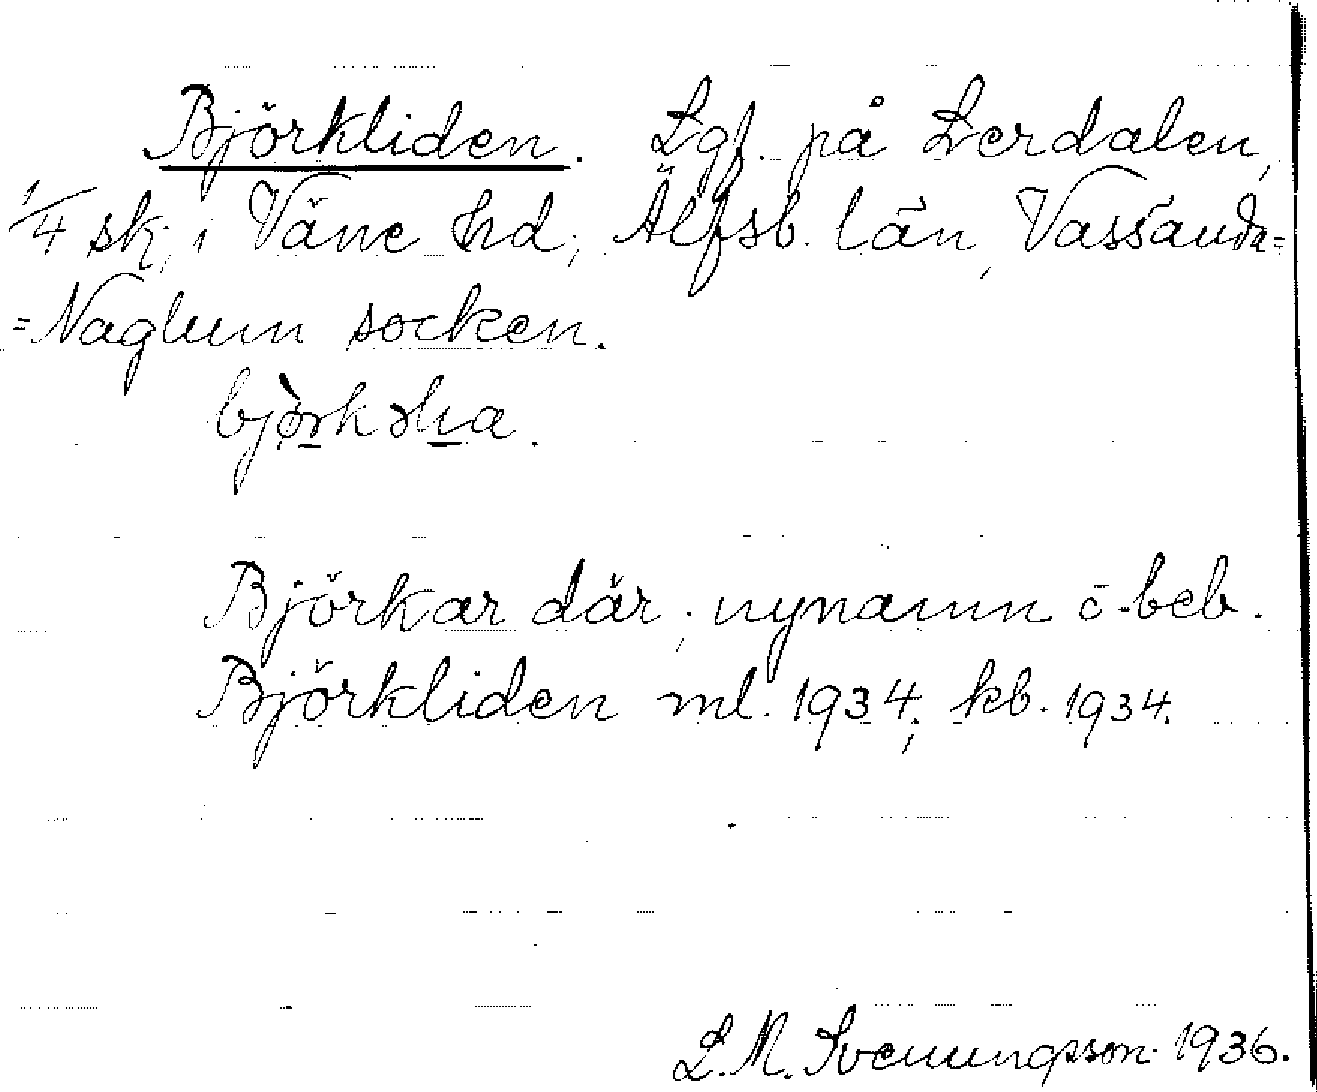 Björkliden. Lgf. på Lerdalen,
1/4 sk, i Väne hd; Älfsb. län, Vassända=
=Naglum socken.
Björkar där; nynamn o-beb.
Björkliden ml. 1934; kb. 1934.
L.M. Svenungsson 1936.